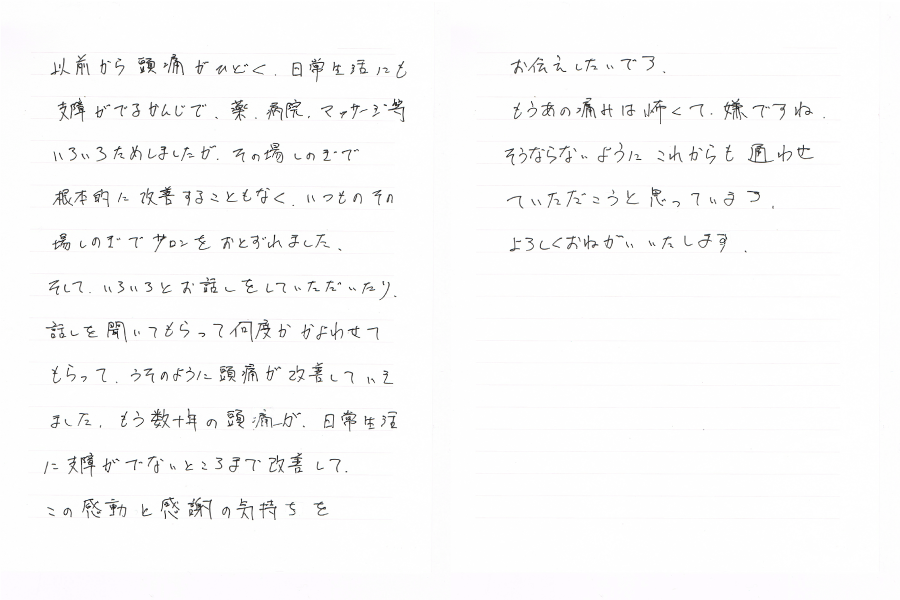 以前から頭痛がひどく、日常生活にも
支障がでるかんじで、薬、病院、マッサージ等
いろいろためしましたが、その場しのぎで
根本的に改善することもなく、いつものその
場しのぎでサロンをおとずれました、
そして、いろいろとお話しをしていただいたり、
話しを聞いてもらって何度かかよわせて
もらって、うそのように頭痛が改善していえ
ました、もう数十年の頭痛が、日常生活
に支障がでないところまで改善して、
この感動と感謝の気持ちを
お伝えしたいです、
もうあの痛みは怖くて、嫌ですね、
そうならないようにこれからも通わせ
ていただこうと思っています、
よろしくおねがいいたします、